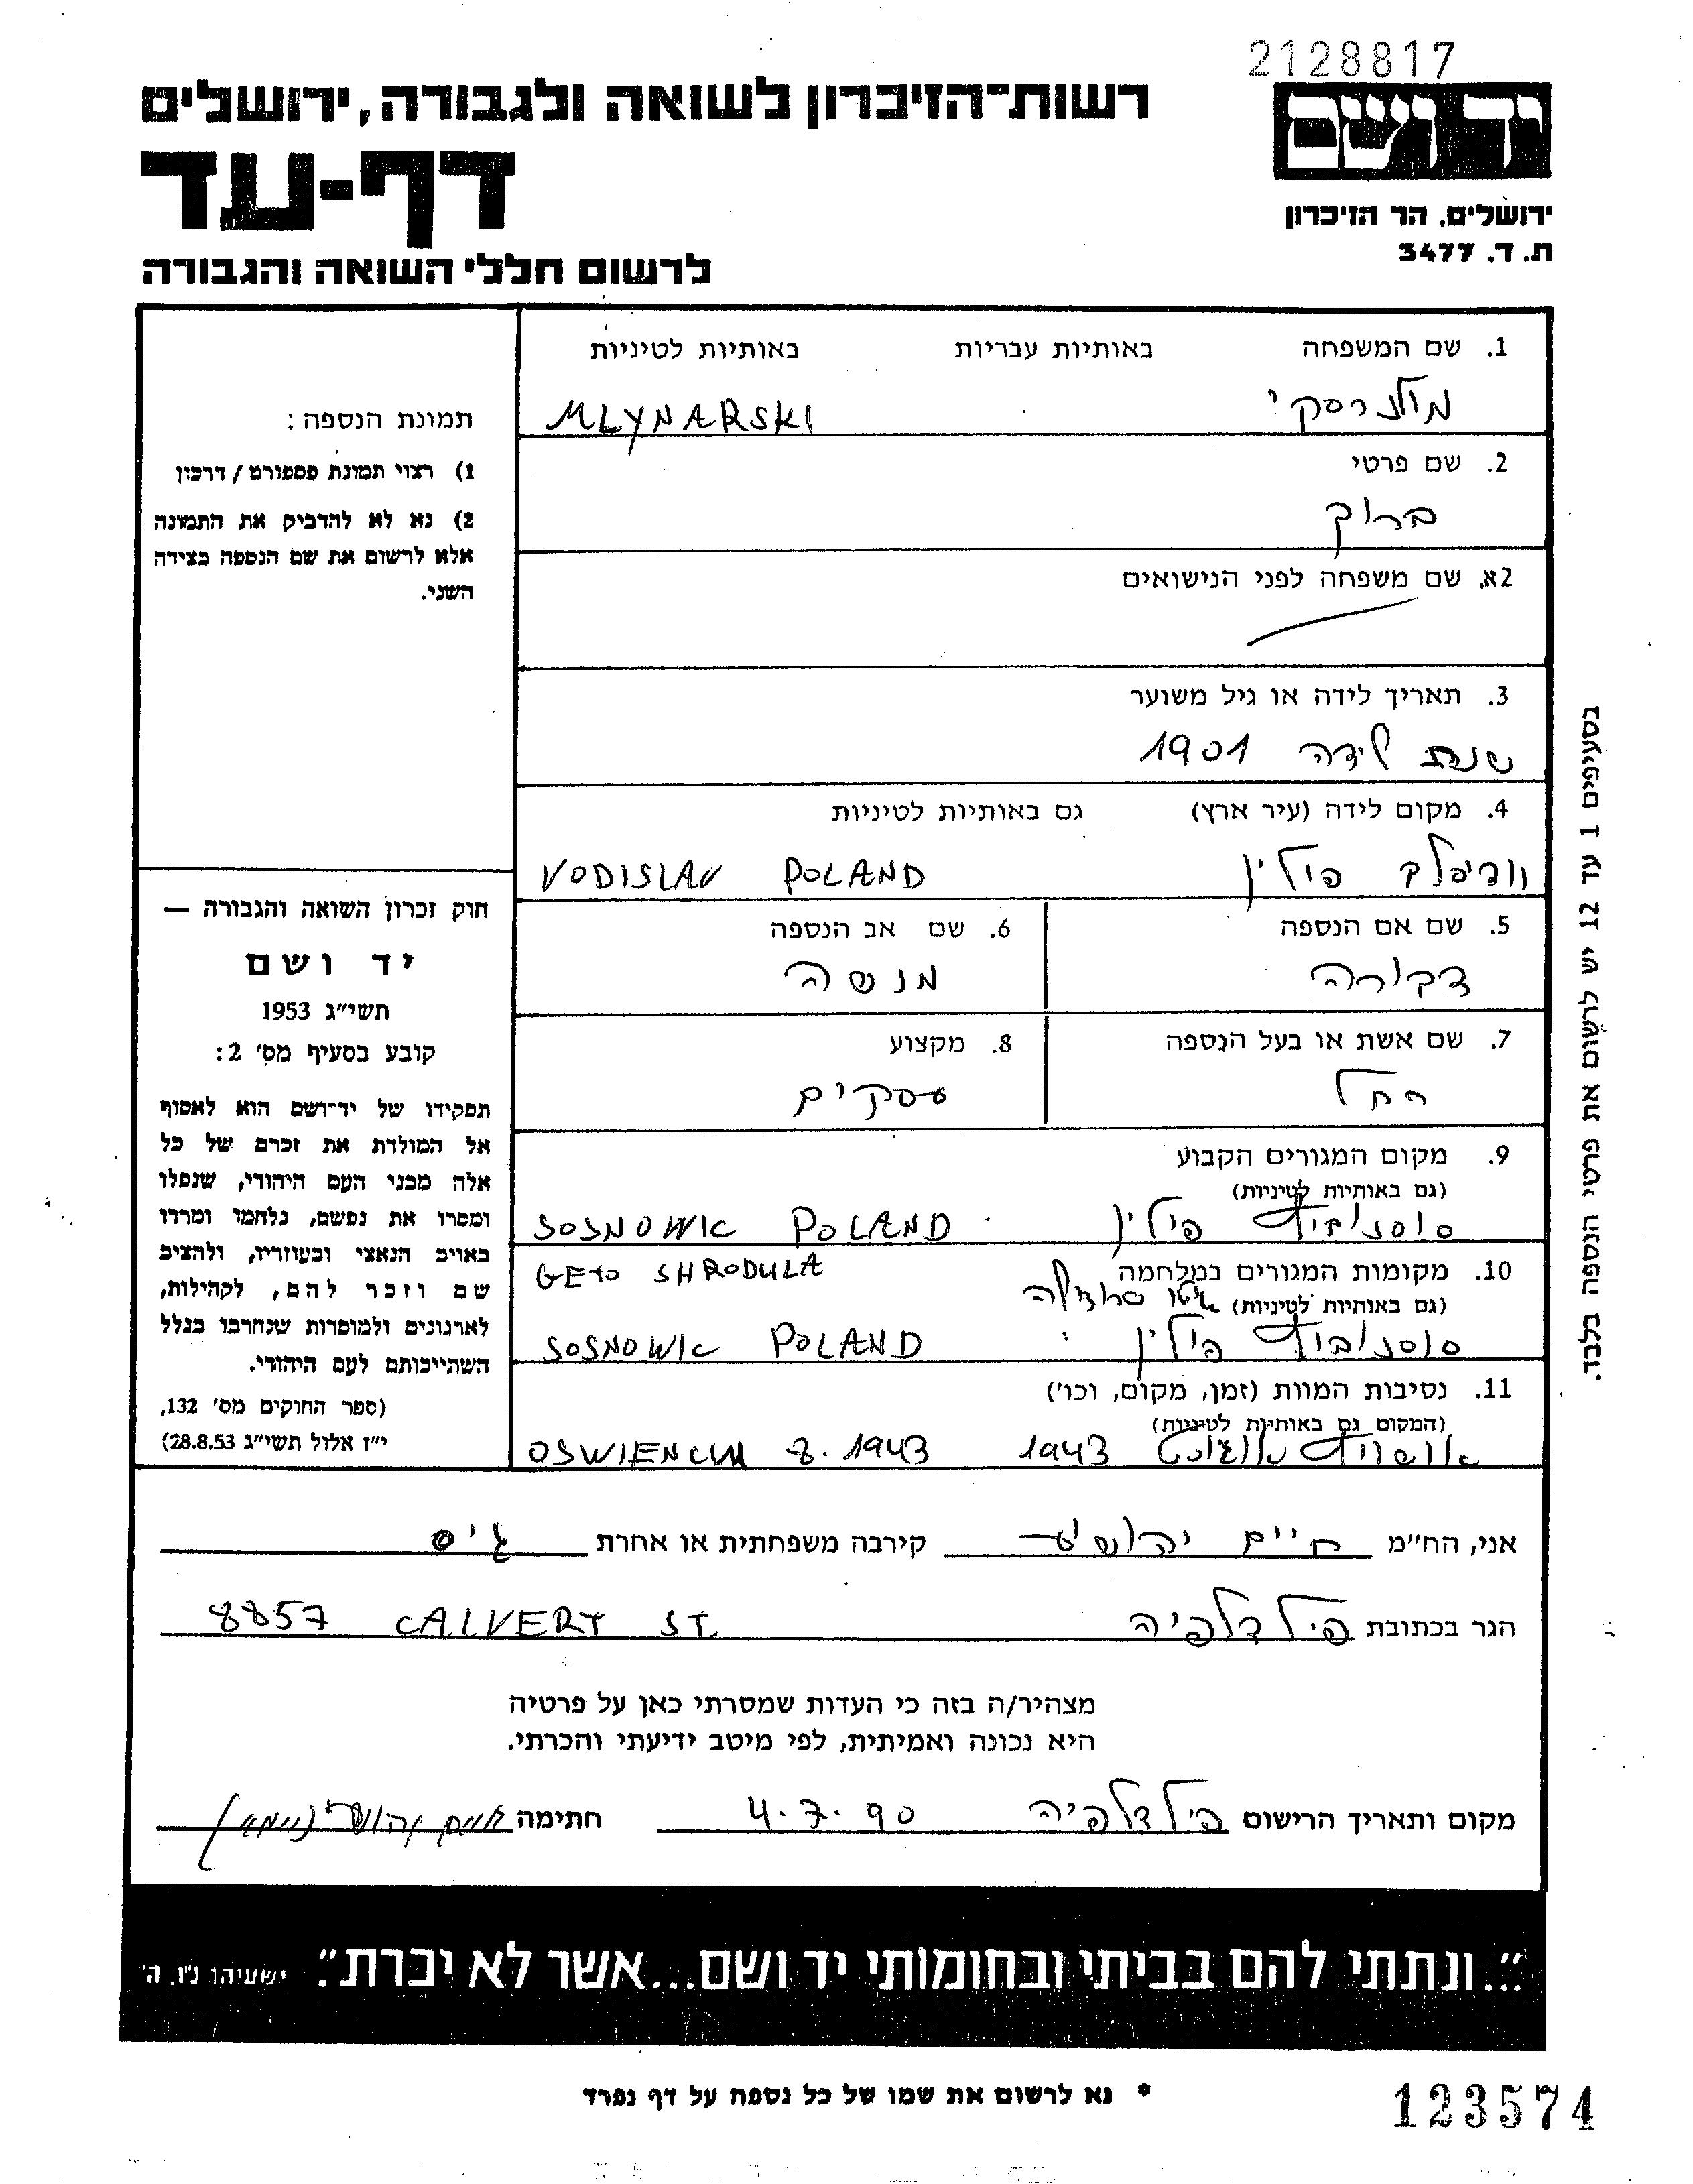 2128817
רשות־הזיכרון לשואה ולגבורה, ירושלים
יד ושם
דף-עד
ירושלים, הר הזיכרון
ת. ד. 3477
לרשום חללי השואה והגבורה
1. שם המשפחה באותיות עבריות באותיות לטיניות
מלנרסקי MLYNARSKI
2. שם פרטי
ברוך
2א. שם משפחה לפני הנישואים
3. תאריך לידה או גיל משוער
שנת לידה 1901
4. מקום לידה (עיר ארץ) גם באותיות לטיניות
פולין VODISLAV POLAND
5. שם אם הנספה 6. שם אב הנספה
דבורה מנשה
7. שם אשת או בעל הנספה 8. מקצוע
רחל עסקים
9. מקום המגורים הקבוע
(גם באותיות לטיניות)
סוסנוביץ פולין SOSNOWIC POLAND
10. מקומות המגורים במלחמה GETO SHRODULA
(גם באותיות לטיניות)
סוסנוביץ פולין SOSNOWIC POLAND
11. נסיבות המוות (זמן, מקום, וכו')
(המקום גם באותיות לטיניות)
אושוויץ אוגוסט 1943 OSWIENCIM 8.1943
תמונת הנספה:
1) רצוי תמונת פספורט / דרכון
2) נא לא להדביק את התמונה
אלא לרשום את שם הנספה בצידה
השני.
חוק זכרון השואה והגבורה —
יד ושם
תשי"ג 1953
קובע בסעיף מס' 2:
תפקידו של יד־ושם הוא לאסוף
אל המולדת את זכרם של כל
אלה מבני העם היהודי, שנפלו
ומסרו את נפשם, נלחמו ומרדו
באויב הנאצי ובעוזריו, ולהציב
שם וזכר להם, לקהילות,
לארגונים ולמוסדות שנחרבו בגלל
השתייכותם לעם היהודי.
(ספר החוקים מס' 132,
י"ז אלול תשי"ג 28.8.53)
בסעיפים 1 עד 12 יש לרשום את פרטי הנספה בלבד.
אני, הח"מ חיים יהושע קירבה משפחתית או אחרת גיס
הגר בכתובת פילדלפיה 8857 CALVERT ST.
מצהיר/ה בזה כי העדות שמסרתי כאן על פרטיה
היא נכונה ואמיתית, לפי מיטב ידיעתי והכרתי.
מקום ותאריך הרישום פילדלפיה 4.7.90 חתימה
"...ונתתי להם בביתי ובחומותי יד ושם...אשר לא יכרת". ישעיהו נ"ו, ה'
* נא לרשום את שמו של כל נספה על דף נפרד
123574